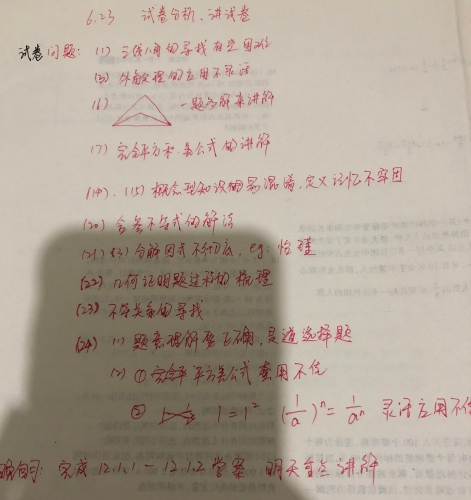 6.23 试卷分析、讲试卷
试卷问题：(1) 三线八角的寻找有些困难
(3) 外角定理的应用不灵活
(6) 一题多解来讲解
(7) 完全平方和、差公式的讲解
(14)、(15) 概念型知识的易混淆，定义记忆不牢固
(20) 含参不等式的解法
(21) 分解因式不彻底，eg：
(22) 几何证明题过程的梳理
(23) 不等关系的寻找
(24) (1) 题意理解要正确，是道选择题
(2) ① 完全平方差公式 应用不佳
② 1=1² (1/a)ⁿ=1/aⁿ 灵活应用不佳
完成 12.1.1-12.1.2 学案 明天重点讲解